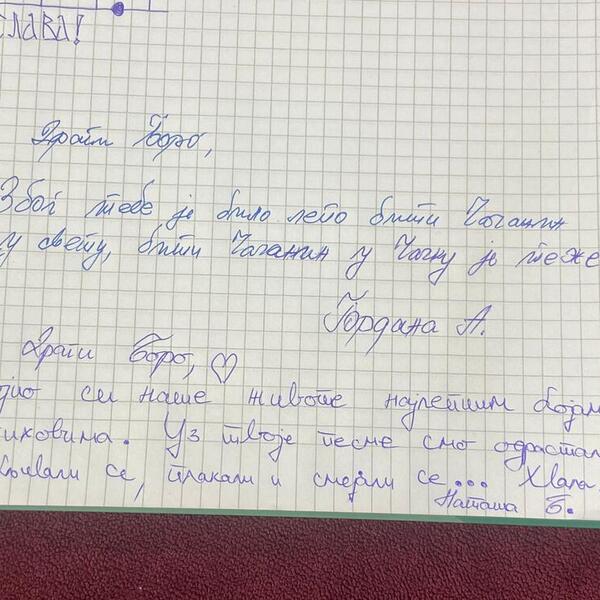 СЛАВА!
Драги Боро,
Због тебе је било лепо бити Чачанин
у свету, бити Чачанин у Чачку је теже
Гордана А.
Драги Боро, ♡
си наше животе најлепшим бојам
сликовима. Уз твоје песме смо одрастал
се, плакали и смејали се... Хвала.
Наташа Б.